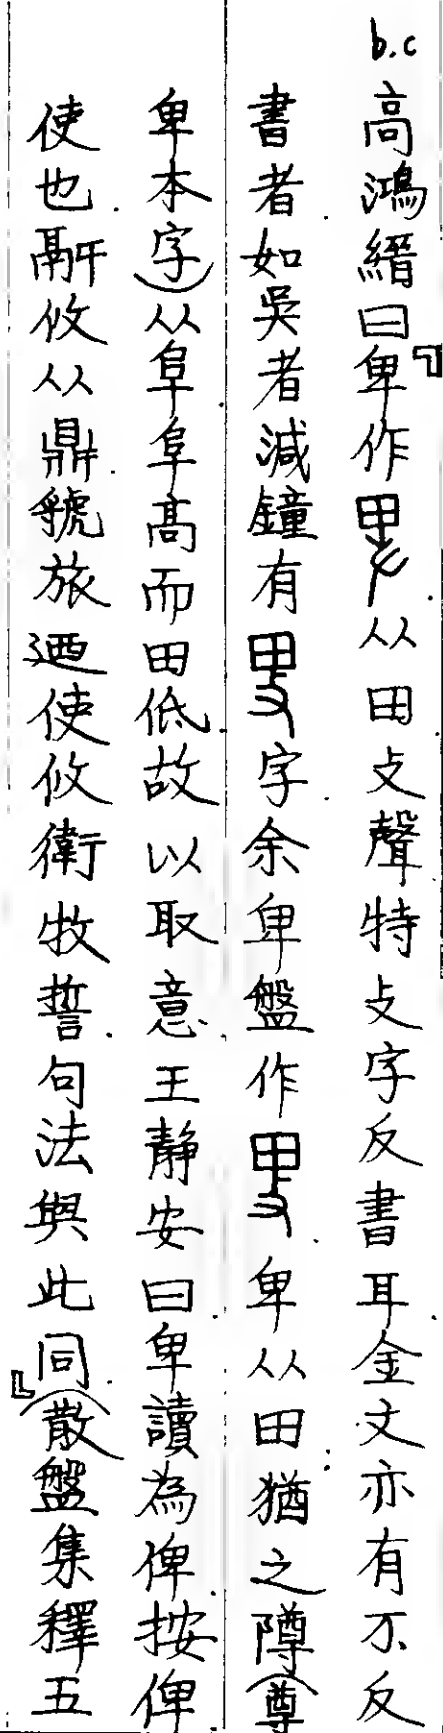 b.c
高鴻縉曰『卑作从田攴聲特攴字反書耳金文亦有不反
書者如吳者減鐘有字余卑盤作卑从田猶之障(尊
卑本字)从阜阜高而田低故以取意王靜安曰卑讀為俾按俾
使也攸从鼎號旅迺使攸衛牧誓句法與此同』(散盤集釋五